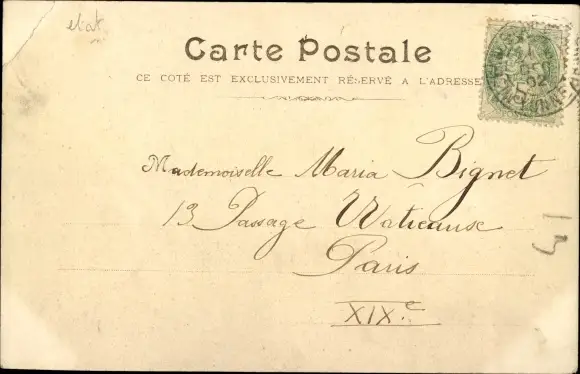 etat
Carte Postale
CE COTÉ EST EXCLUSIVEMENT RÉSERVÉ A L'ADRESSE
Mademoiselle Maria Bignet
13 Passage Wâtieause
Paris
XIXe